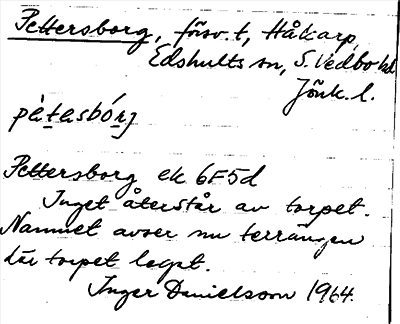 Pettersborg, försv. t, Håkarp,
Edshults sn, S. Vedbo hd
Jönk. l.
pä̀tasbórj
Pettersborg ek 6F5d
Inget återstår av torpet.
Namnet avser nu terrängen
där torpet legat.
Inger Danielsson 1964